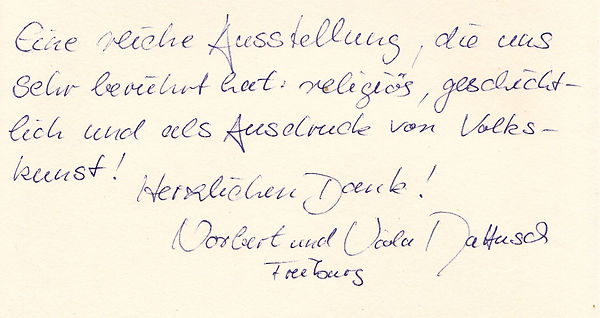 Eine reiche Ausstellung, die uns
sehr berührt hat: religiös, geschicht-
lich und als Ausdruck von Volks-
kunst!
Herzlichen Dank!
Norbert und Viola
Freiburg